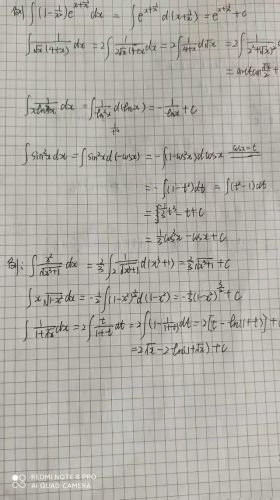 例 ∫(1-1/x²)e^{x+1/x}dx = ∫e^{x+1/x}d(x+1/x) = e^{x+1/x}+C
∫1/(√x(4+x))dx = 2∫1/(2√x(4+x))dx = 2∫1/(4+x)d√x = 2∫1/(2²+(√x)²)
= arctan √x/2 +
∫1/(xln²x)dx ∫1/(ln²x)d(lnx) = -1/lnx + C
∫sin³xdx = ∫sin²xd(-cosx) = -∫(1-cos²x)dcosx cosx=t
= -∫(1-t²)dt = ∫(t²-1)dt
= 1/3t³-t+C
= 1/3cos³x-cosx+C
例: ∫x²/√(x³+1)dx = 2/3∫1/(2√(x³+1))d(x³+1) = 2/3√(x³+1)+C
∫x√(1-x²)dx = -1/2∫(1-x²)^{1/2}d(1-x²) = -1/3(1-x²)^{3/2}+C
∫1/(1+√x)dx = 2∫t/(1+t)dt = 2∫(1-1/(1+t))dt = 2[t-ln(1+t)]+C
= 2√x-2ln(1+√x)+C
REDMI NOTE 8 PRO
AI QUAD CAMERA